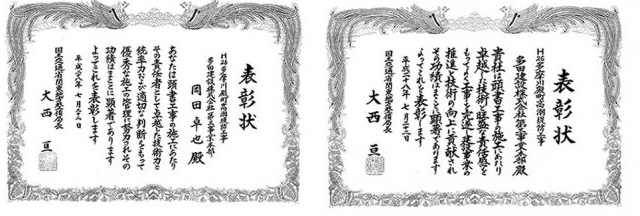 表彰状
H26多摩川殿町高潮堤防工事
多田建設株式会社第三事業本部
岡田卓也殿
あなたは頭書工事の施工にあたり
その責任者として卓越した技術力と
統率力および適切な判断をもって
優秀な施工管理に努力されその
功績はまことに顕著であります
よってこれを表彰します
平成二十八年七月二十二日
国土交通省関東地方整備局長
大西亘
表彰状
H26多摩川殿町高潮堤防工事
多田建設株式会社第三事業本部殿
貴社は頭書工事の施工にあたり
卓越した技術と旺盛な責任感を
もってよく工事を完遂し建設事業の
推進と技術の向上に貢献され
その功績はまことに顕著であります
よってこれを表彰します
平成二十八年七月二十二日
国土交通省関東地方整備局長
大西亘